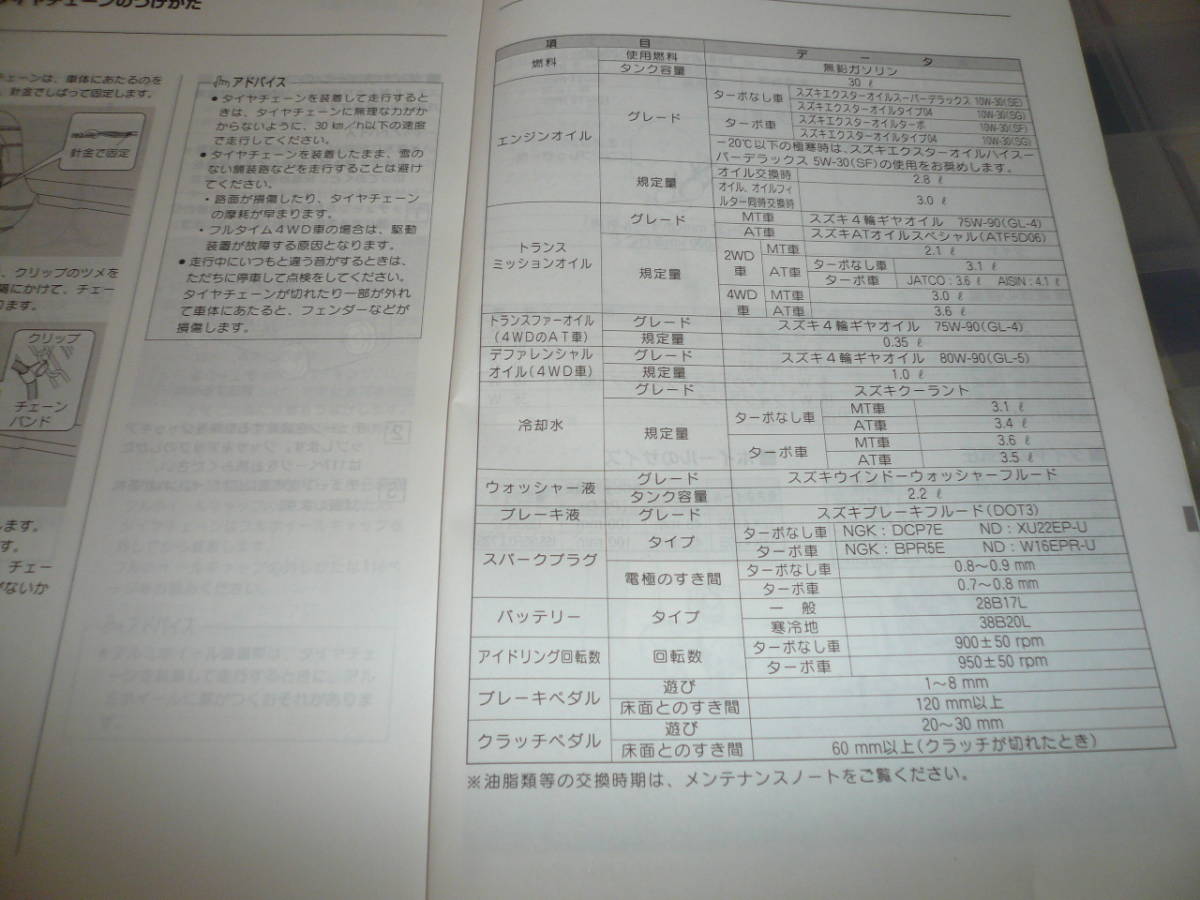 イヤチェーンのつけかた
チェーンは、車体にあたるのを
針金でしばって固定します。
針金で固定
、クリップのツメを
隔にかけて、チェー
ります。
クリップ
チェーン
バンド
します。
す。
チェー
がないか
アドバイス
●タイヤチェーンを装着して走行すると
きは、タイヤチェーンに無理な力がか
からないように、30 km/h以下の速度
で走行してください。
●タイヤチェーンを装着したまま、雪の
ない舗装路などを走行することは避け
てください。
・路面が損傷したり、タイヤチェーン
の摩耗が早まります。
・フルタイム4WD車の場合は、駆動
装置が故障する原因となります。
●走行中にいつもと違う音がするときは、
ただちに停車して点検をしてください。
タイヤチェーンが切れたり一部が外れ
て車体にあたると、フェンダーなどが
損傷します。
項 目 データ
燃料 使用燃料 無鉛ガソリン
タンク容量 30 ℓ
エンジンオイル グレード ターボなし車 スズキエクスターオイルスーパーデラックス 10W-30(SE)
スズキエクスターオイルタイプ04 10W-30(SG)
ターボ車 スズキエクスターオイルターボ 10W-30(SF)
スズキエクスターオイルタイプ04 10W-30(SG)
−20℃以下の極寒時は、スズキエクスターオイルハイスー
パーデラックス 5W-30(SF)の使用をお奨めします。
規定量 オイル交換時 2.8 ℓ
オイル、オイルフィ
ルター同時交換時 3.0 ℓ
トランス
ミッションオイル グレード MT車 スズキ4輪ギヤオイル 75W-90(GL-4)
AT車 スズキATオイルスペシャル(ATF5D06)
規定量 2WD
車 MT車 2.1 ℓ
AT車 ターボなし車 3.1 ℓ
ターボ車 JATCO:3.6 ℓ AISIN:4.1 ℓ
4WD
車 MT車 3.0 ℓ
AT車 3.6 ℓ
トランスファーオイル
(4WDのAT車) グレード スズキ4輪ギヤオイル 75W-90(GL-4)
規定量 0.35 ℓ
デファレンシャル
オイル(4WD車) グレード スズキ4輪ギヤオイル 80W-90(GL-5)
規定量 1.0 ℓ
冷却水 グレード スズキクーラント
規定量 ターボなし車 MT車 3.1 ℓ
AT車 3.4 ℓ
ターボ車 MT車 3.6 ℓ
AT車 3.5 ℓ
ウォッシャー液 グレード スズキウインドーウォッシャーフルード
タンク容量 2.2 ℓ
ブレーキ液 グレード スズキブレーキフルード(DOT3)
スパークプラグ タイプ ターボなし車 NGK:DCP7E ND:XU22EP-U
ターボ車 NGK:BPR5E ND:W16EPR-U
電極のすき間 ターボなし車 0.8〜0.9 mm
ターボ車 0.7〜0.8 mm
バッテリー タイプ 一般 28B17L
寒冷地 38B20L
アイドリング回転数 回転数 ターボなし車 900±50 rpm
ターボ車 950±50 rpm
ブレーキペダル 遊び 1〜8 mm
床面とのすき間 120 mm以上
クラッチペダル 遊び 20〜30 mm
床面とのすき間 60 mm以上(クラッチが切れたとき)
※油脂類等の交換時期は、メンテナンスノートをご覧ください。